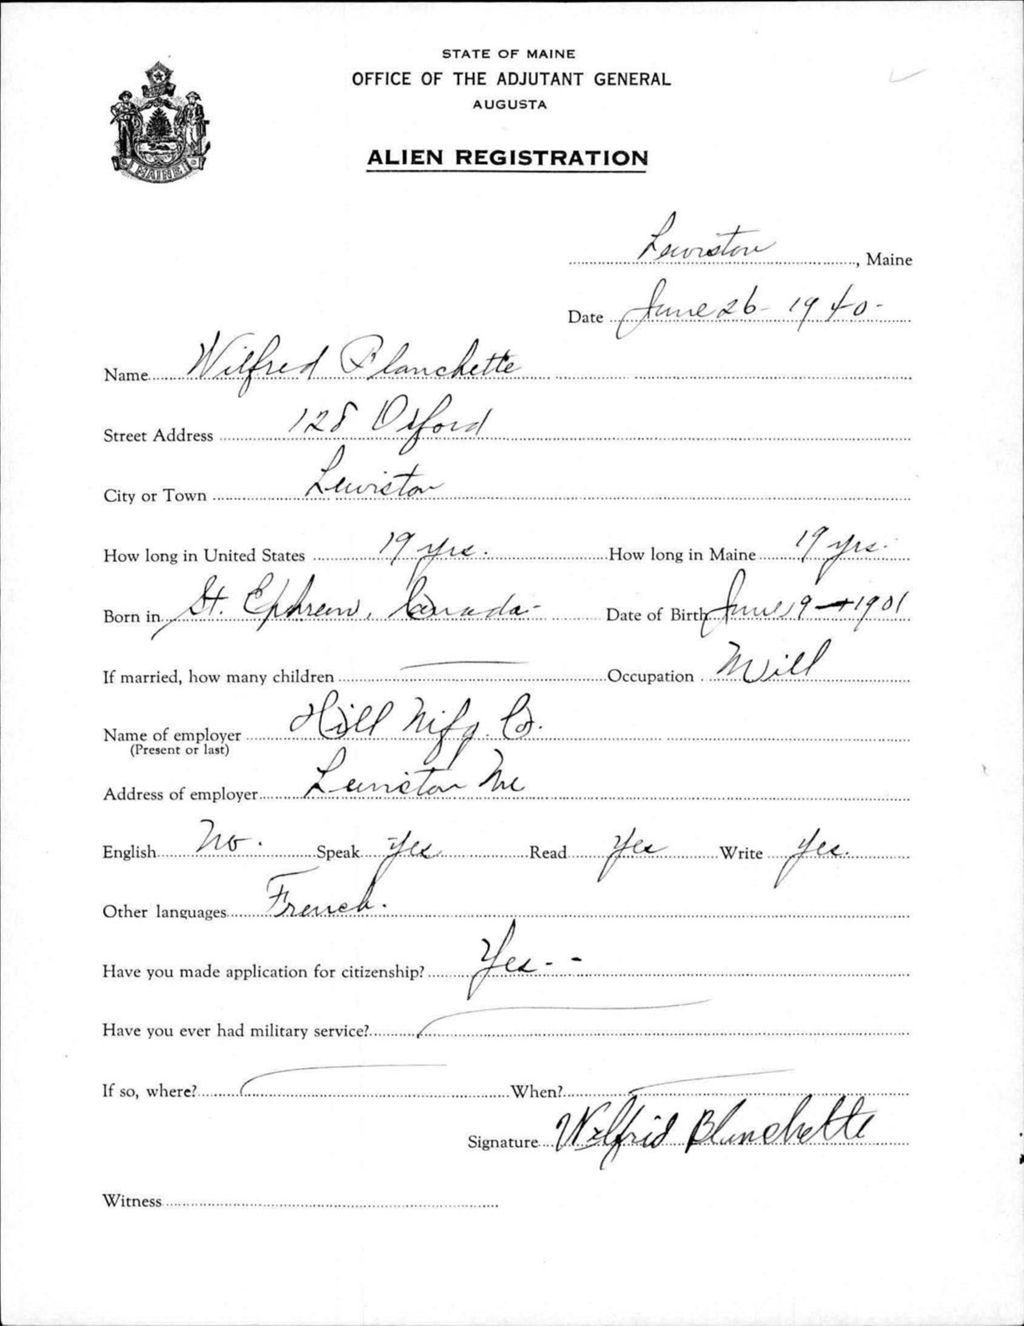 STATE OF MAINE
OFFICE OF THE ADJUTANT GENERAL
AUGUSTA
ALIEN REGISTRATION
MAINE
Lewiston, Maine
Date June 26 - 1940 -
Name Wilfred Blanchette
Street Address 128 Oxford
City or Town Lewiston
How long in United States 19 yrs. How long in Maine 19 yrs.
Born in St. Ephrem, Canada - Date of Birth June 9 - 1901
If married, how many children Occupation Mill
Name of employer Hill Mfg. Co.
(Present or last)
Address of employer Lewiston Me
English No. Speak Yes Read Yes Write Yes.
Other languages French.
Have you made application for citizenship? Yes - -
Have you ever had military service?
If so, where? When?
Signature Wilfrid Blanchette
Witness